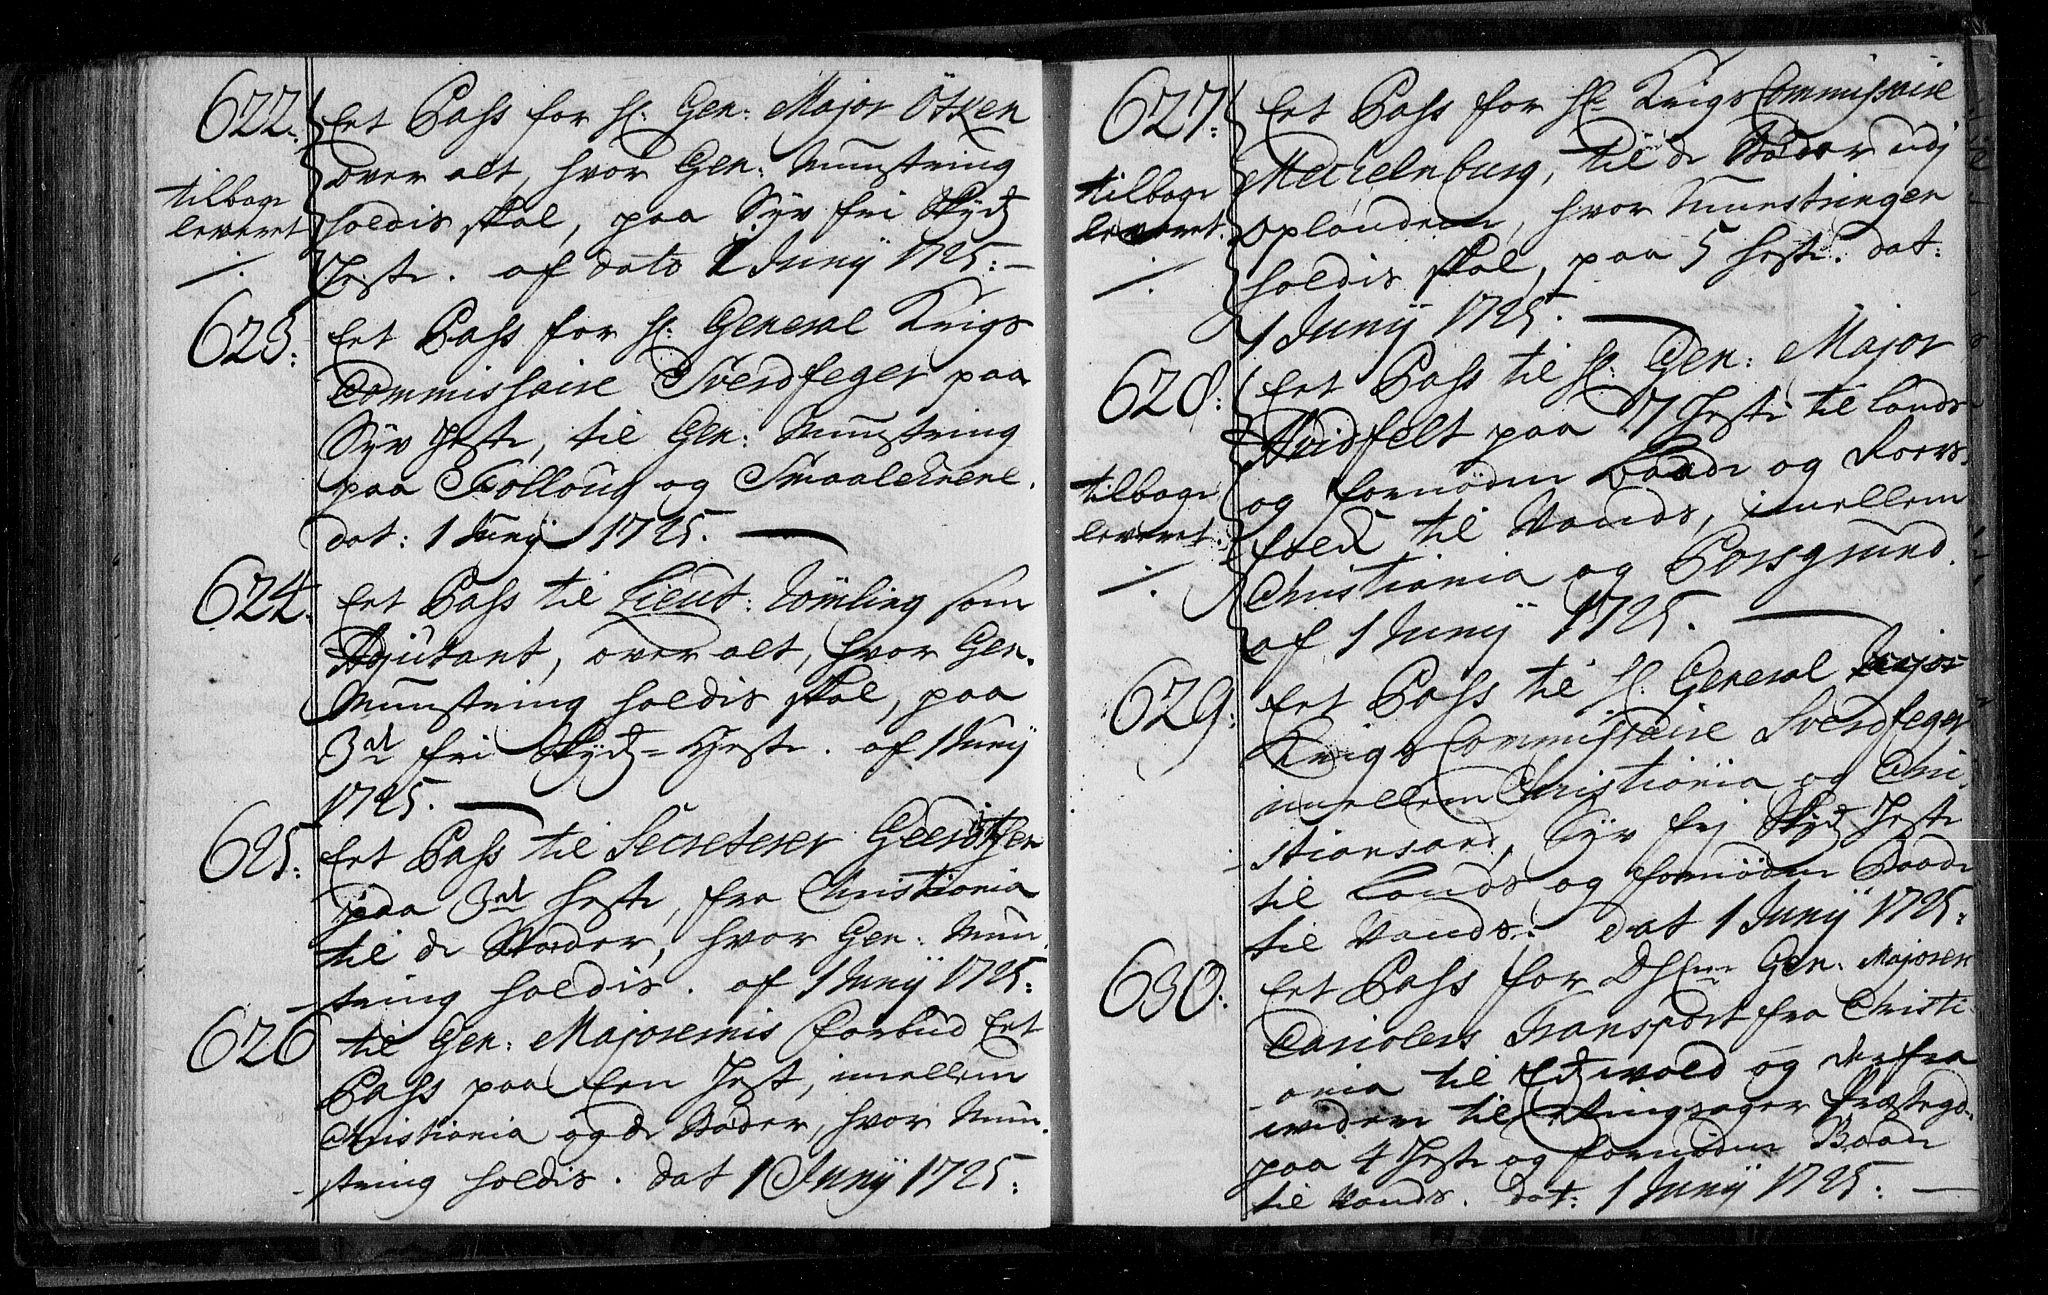 622. Et Pass for H: Gen: Major Ötken
over alt, hvor Gen: Munstring
tilbage holdis skal, paa Syv fri Skydz
leveret Heste. af dato 1 Junij 1725: —
623: Et Pass for H: General Krigs
Commissaire Sverdfeger paa
Syv Heste, til Gen: Munstring
paa Folloug og Smaalehnene.
dat: 1 Junij 1725. —
624. Et Pass til Lieut: Tömling som
Adjutant, over alt, hvor Gen.
Munstring holdis skal, paa
3de fri Skydz=Heste. af 1 Junij
1725. —
625: Et Pass til Secreterer
paa 3de Heste, fra Christiania
til de Stæder, hvor Gen: Mun
string holdis. af 1 Junij 1725:
626 til Gen: Majorernis Forbud Et
Pass paa Een Hest, imellem
Christiania og de Stæder, hvor Mun
string holdis. dat 1 Junij 1725:
627: Et Pass for Hr Krigs Commissaire
Mechelnburg, til de Stæder udj
tilbage Oplandene, hvor Munstringen
leveret. holdis skal, paa 5 Heste. dat:
1 Junij 1725. —
628: Et Pass til H: Gen: Major
Hvidfelt paa 7 Heste til Lands
tilbage og fornøden Baade og Roers-
leveret. folk til Vands, imellem
Christiania og Porsgrund.
af 1 Junij 1725. —
629: Et Pass til H: General
Krigs Commissaire Sverdfeger
imellem Christiania og Chri-
stiansand, Syv frj Skydz Heste
til Lands og fornøden Baade
til Vands. dat 1 Junij 1725:
630: Et Pass for Gen: Majorer
Transport fra Christi-
ania til Edzvold og derfra
widere til Ringsager Præstegd.
paa 4 Heste og fornøden Baade
til Vands. dat: 1 Junij 1725: —